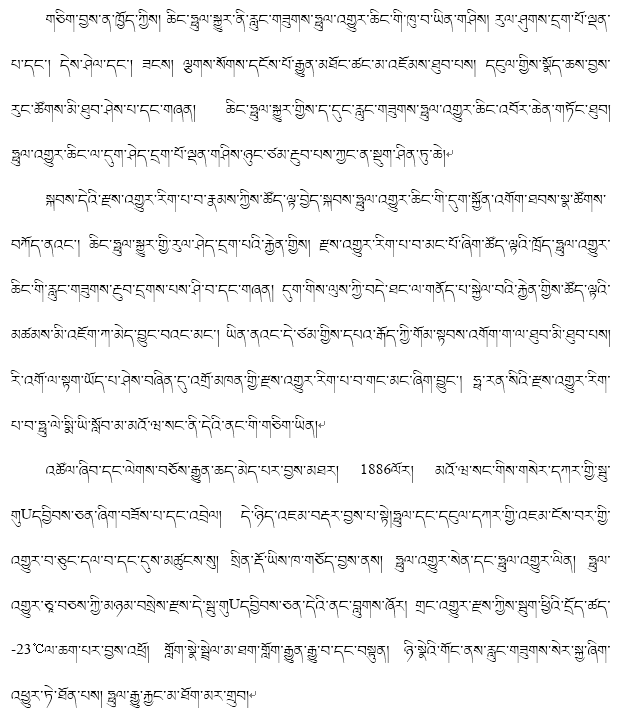 གཅིག་བྱས་ན་ཁྱོད་ཀྱིས། ཆིང་ཧྥུལ་སྐྱུར་ནི་རླུང་གཟུགས་ཧྥུལ་འགྱུར་ཆིང་གི་ཁུ་བ་ཡིན་གཤིས། རུལ་ཤུགས་དྲག་པོ་ལྡན་
པ་དང་། དེས་ཤེལ་དང་། ཟངས། ལྕགས་སོགས་དངོས་པོ་རྒྱུན་མཐོང་ཚང་མ་འཇོམས་ཐུབ་པས། དངུལ་གྱིས་སྣོད་ཆས་བྱས་
རུང་ཚོགས་མི་ཐུབ་ཤེས་པ་དང་གཞན། ཆིང་ཧྥུལ་སྐྱུར་གྱིས་ད་དུང་རླུང་གཟུགས་ཧྥུལ་འགྱུར་ཆིང་འབོར་ཆེན་གཏོང་ཐུབ།
ཧྥུལ་འགྱུར་ཆིང་ལ་དུག་ཤེད་དྲག་པོ་ལྡན་གཤིས་ཉུང་ཙམ་རྔུབ་པས་ཀྱང་ན་སྡུག་ཤིན་ཏུ་ཆེ།
སྐབས་དེའི་རྫས་འགྱུར་རིག་པ་བ་རྣམས་ཀྱིས་ཚོད་ལྟ་བྱེད་སྐབས་ཧྥུལ་འགྱུར་ཆིང་གི་དུག་སྐྱོན་འགོག་ཐབས་སྣ་ཚོགས་
བཀོད་ནའང་། ཆིང་ཧྥུལ་སྐྱུར་གྱི་རུལ་ཤེད་དྲག་པའི་རྐྱེན་གྱིས། རྫས་འགྱུར་རིག་པ་བ་མང་པོ་ཞིག་ཚོད་ལྟའི་ཁྲོད་ཧྥུལ་འགྱུར་
ཆིང་གི་རླུང་གཟུགས་རྔུབ་དྲགས་པས་ཤི་བ་དང་གཞན། དུག་གིས་ལུས་ཀྱི་བདེ་ཐང་ལ་གནོད་པ་སྐྱེལ་བའི་རྐྱེན་གྱིས་ཚོད་ལྟའི་
མཚམས་མི་འཇོག་ཀ་མེད་བྱུང་བའང་མང་། ཡིན་ནའང་དེ་ཙམ་གྱིས་དཔའ་རྒོད་ཀྱི་གོམ་སྟབས་འགོག་ག་ལ་ཐུབ་མི་ཐུབ་པས།
རི་འགོ་ལ་སྟག་ཡོད་པ་ཤེས་བཞིན་དུ་འགྲོ་མཁན་གྱི་རྫས་འགྱུར་རིག་པ་བ་གང་མང་ཞིག་བྱུང་། ཧྥ་རན་སིའི་རྫས་འགྱུར་རིག་
པ་བ་ཧྥུ་ལེ་སྨི་ཡི་སློབ་མ་མའོ་ཝ་སང་ནི་དེའི་ནང་གི་གཅིག་ཡིན།
འཚོལ་ཞིབ་དང་ལེགས་བཅོས་རྒྱུན་ཆད་མེད་པར་བྱས་མཐར། 1886ལོར། མའོ་ཝ་སང་གིས་གསེར་དཀར་གྱི་སྦུ་
གུUདབྱིབས་ཅན་ཞིག་བཟོས་པ་དང་འབྲེལ། དེ་ཉིད་འཇམ་བརྡར་བྱས་པ་སྟེ།ཧྥུལ་དང་དངུལ་དཀར་གྱི་འཇམ་ངོས་བར་གྱི་
འགྱུར་བ་ཅུང་དལ་བ་དང་དུས་མཚུངས་སུ། སྲིན་རྡོ་ཡིས་ཁ་གཅོད་བྱས་ནས། ཧྥུལ་འགྱུར་སེན་དང་ཧྥུལ་འགྱུར་ལིན། ཧྥུལ་
འགྱུར་ཅཱ་བཅས་ཀྱི་མཉམ་བསྲེས་རྫས་དེ་སྦུ་གུUདབྱིབས་ཅན་དེའི་ནང་བླུགས་ཞོར། གྲང་འགྱུར་རྫས་ཀྱིས་སྦུག་ཕྱིའི་དྲོད་ཚད་
-23℃ལ་ཆག་པར་བྱས་འཕྲོ། གློག་སྣེ་སྦྲེལ་མ་ཐག་གློག་རྒྱུན་རྒྱུ་བ་དང་བསྟུན། ཉི་སྣེའི་གོང་ནས་རླུང་གཟུགས་སེར་སྐྱ་ཞིག་
འཕྱུར་ཏེ་ཐོན་པས། ཧྥུལ་རྒྱུ་རྐྱང་མ་ཐོག་མར་གྲུབ།